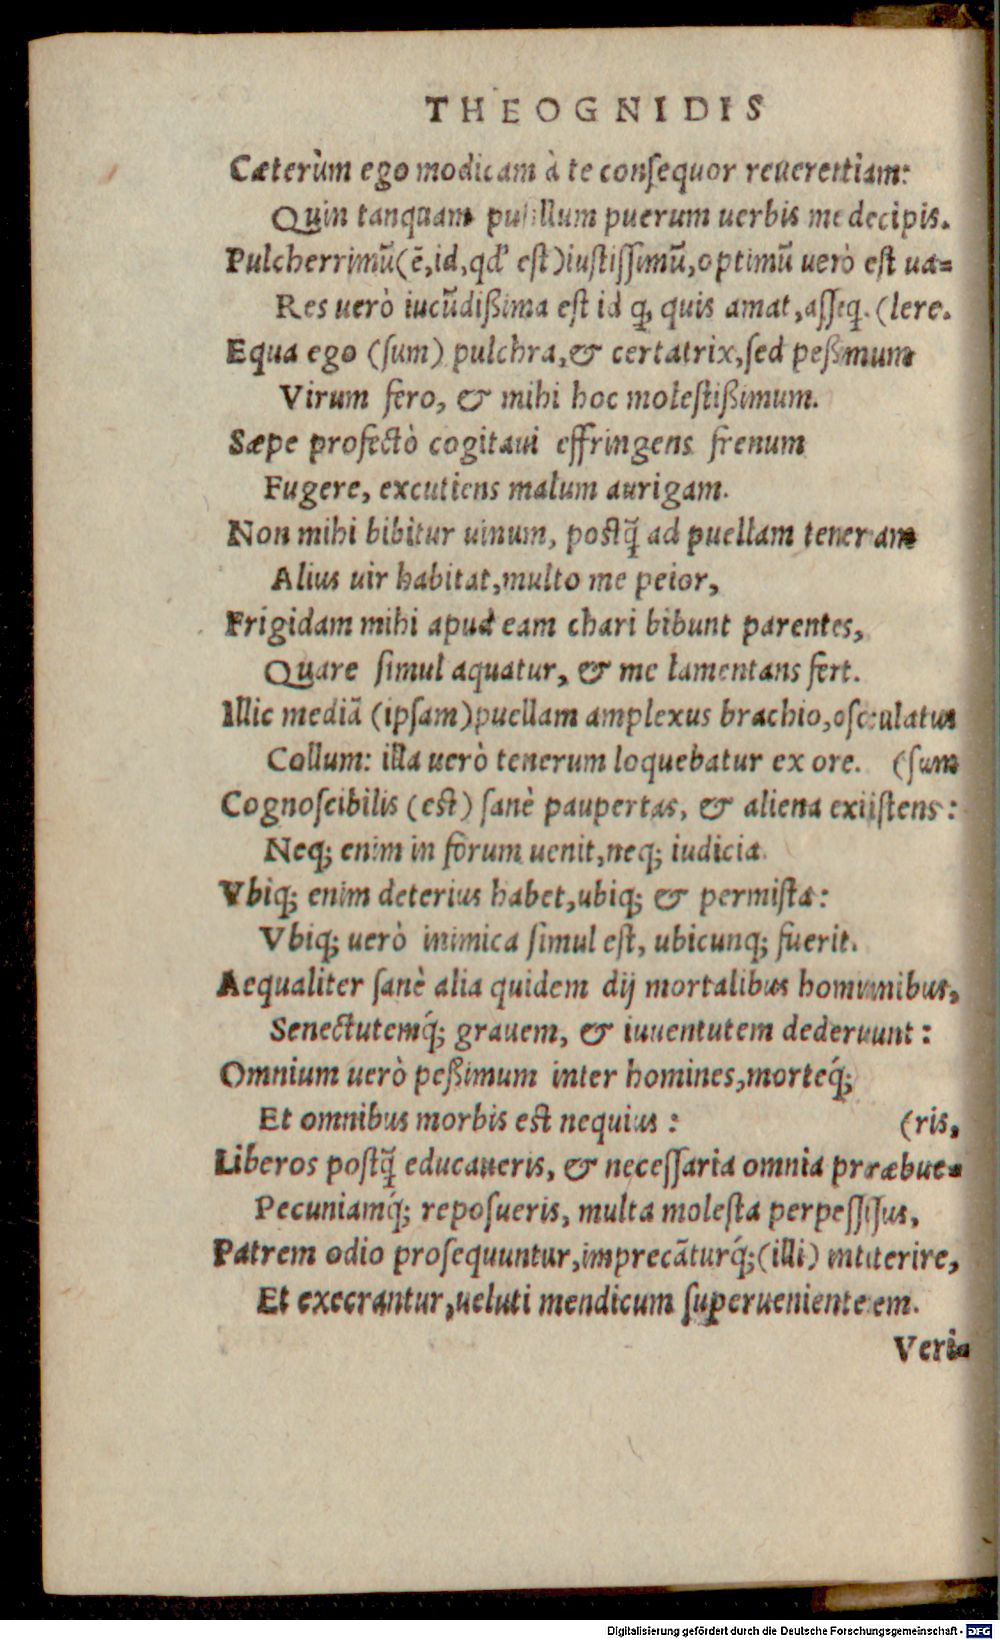 THEOGNIDIS
Cæterùm ego modicam à te conſequor reuerentiam:
Quin tanquam puſillum puerum uerbis me decipis.
Pulcherrimũ(ẽ,id,qđ eſt)iuſtiſſimũ,optimũ uerò eſt ua=
Res uerò iucũdißima eſt id q, quis amat,aſſeq. (lere.
Equa ego (ſum) pulchra,& certatrix,ſed peßimum
Virum fero, & mihi hoc moleſtißimum.
Sæpe profectò cogitaui effringens frenum
Fugere, excutiens malum aurigam.
Non mihi bibitur uinum, poſtq̃ ad puellam teneram
Alius uir habitat,multo me peior,
Frigidam mihi apud eam chari bibunt parentes,
Quare ſimul aquatur, & me lamentans fert.
Illic mediã (ipſam)puellam amplexus brachio,oſculatus
Collum: illa uerò tenerum loquebatur ex ore. (ſum
Cognoſcibilis (eſt) ſanè paupertas, & aliena exiſtens:
Neq; enim in forum uenit,neq; iudicia.
Vbiq; enim deterius habet,ubiq; & permiſta:
Vbiq; uerò inimica ſimul eſt, ubicunq; fuerit.
Aequaliter ſanè alia quidem dij mortalibus hominibus,
Senectutemq́; grauem, & iuuentutem dederunt:
Omnium uerò peßimum inter homines,morteq́;
Et omnibus morbis eſt nequius: (ris,
Liberos poſtq̃ educaueris, & neceſſaria omnia præbue=
Pecuniamq́; repoſueris, multa moleſta perpeſſus,
Patrem odio proſequuntur,imprecãturq́;(illi) interire,
Et execrantur,ueluti mendicum ſuperuenientem.
Veri=
Digitalisierung gefördert durch die Deutsche Forschungsgemeinschaft - DFG